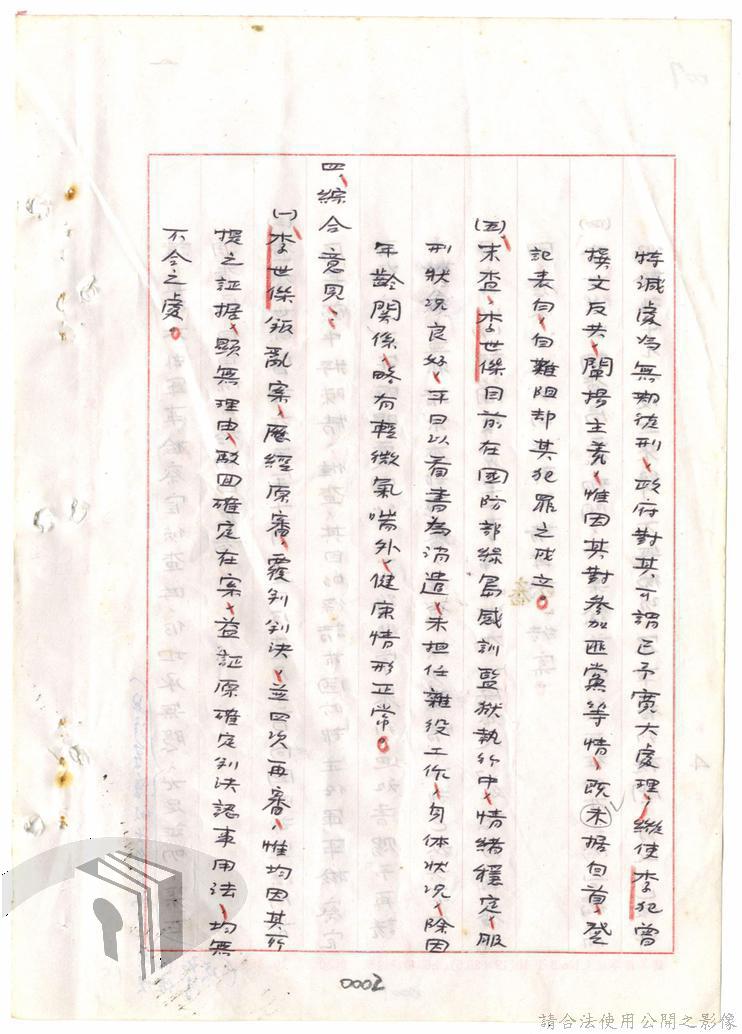 特減處為無期徒刑、政府對其、可謂已予寬大處理、縱使李犯曾
撰文反共、闡揚主義、惟因其對參加匪黨等情、既未据自首、登
記表白、自難阻却其犯罪之成立。
(五)、末查、李世傑目前在國防部綠島感訓監獄執行中、情緒穩定、服
刑狀況良好、平日以看書為消遣、未担任雜役工作、身体狀況、除因
年齡関係、略有輕微氣喘外、健康情形正常。
四、綜合意見:
(一)、李世傑叛亂案、歷經原審、覆判判決、並四次再審、惟均因其所
提之証据、顕無理由、駁回確定在案、益証原確定判決認事用法、均無
不合之處。
0002
請合法使用公開之影像